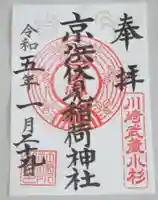 奉拝
川崎武蔵小杉
京浜伏見稲荷神社
令和五年一月